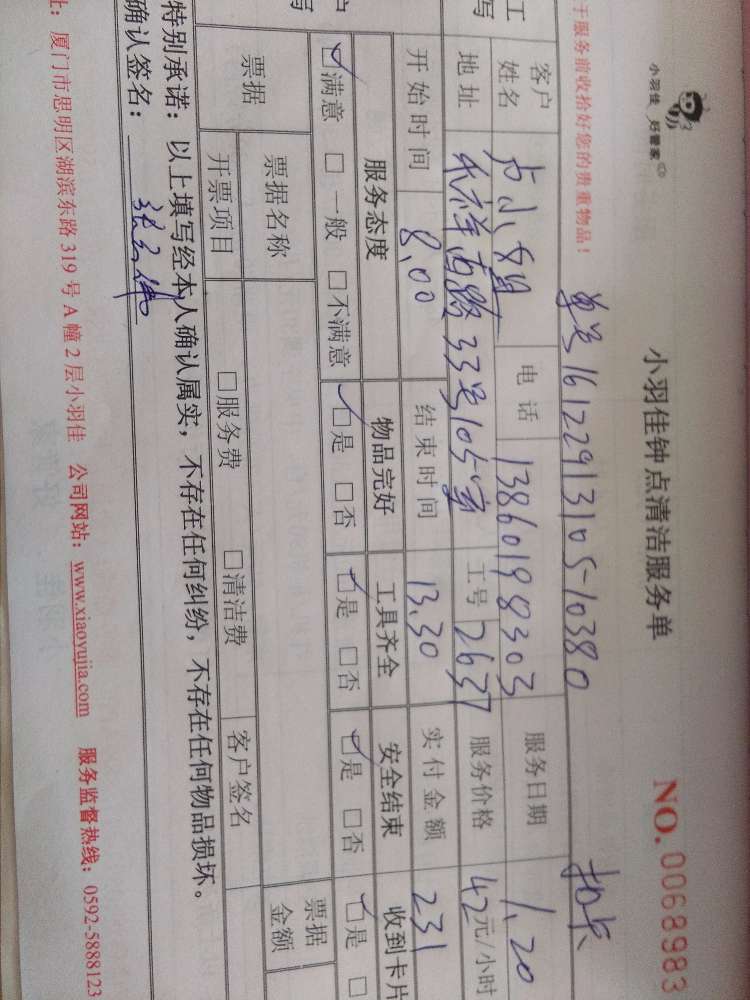 小羽佳 好管家
小羽佳钟点清洁服务单
NO. 0068983
于服务前收拾好您的贵重物品！
单号16122913105-10380
扣卡
工
写
客户姓名 卢小姐 电话 13860198303 服务日期 1.20
地址 禾祥西路33号105室 工号 2637 服务价格 42元/小时
开始时间 8.00 结束时间 13.30 实付金额 231
户
写
服务态度 物品完好 工具齐全 安全结束 收到卡片
☑满意 □一般 □不满意 ☑是 □否 ☑是 □否 ☑是 □否 ☑是 □
票据 票据名称 票据金额
开票项目 □服务费 □清洁费 客户签名
特别承诺：以上填写经本人确认属实，不存在任何纠纷，不存在任何物品损坏。
确认签名：
址：厦门市思明区湖滨东路319号A幢2层小羽佳 公司网站：www.xiaoyujia.com 服务监督热线：0592-5888123